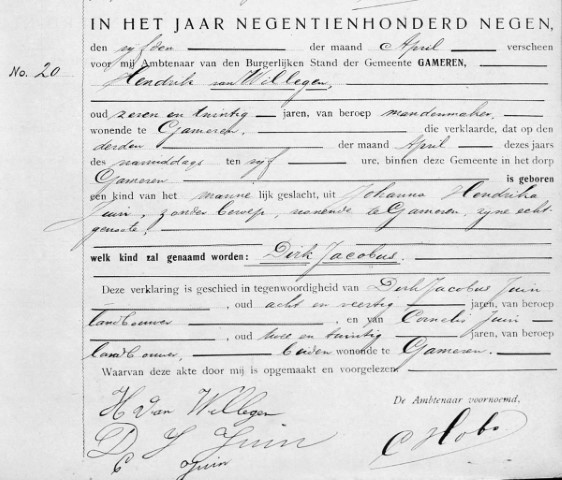 IN HET JAAR NEGENTIENHONDERD NEGEN,
den vijfden der maand April verscheen
No. 20
voor mij Ambtenaar van den Burgerlijken Stand der Gemeente GAMEREN,
Hendrik van Willegen,
oud zeven en twintig jaren, van beroep mandenmaker,
wonende te Gameren, die verklaarde, dat op den
derden der maand April dezes jaars
des namiddags ten vijf ure, binnen deze Gemeente in het dorp
Gameren is geboren
een kind van het mannelijk geslacht, uit Johanna Hendrika
Juin, zonder beroep, wonende te Gameren, zijne echt-
genoote,
welk kind zal genaamd worden: Dirk Jacobus.
Deze verklaring is geschied in tegenwoordigheid van Dirk Jacobus Juin
, oud acht en veertig jaren, van beroep
landbouwer en van Cornelis Juin
, oud twee en twintig jaren, van beroep
landbouwer, beiden wonende te Gameren.
Waarvan deze akte door mij is opgemaakt en voorgelezen.
De Ambtenaar voornoemd,
H van Willegen
D J Juin
C Juin